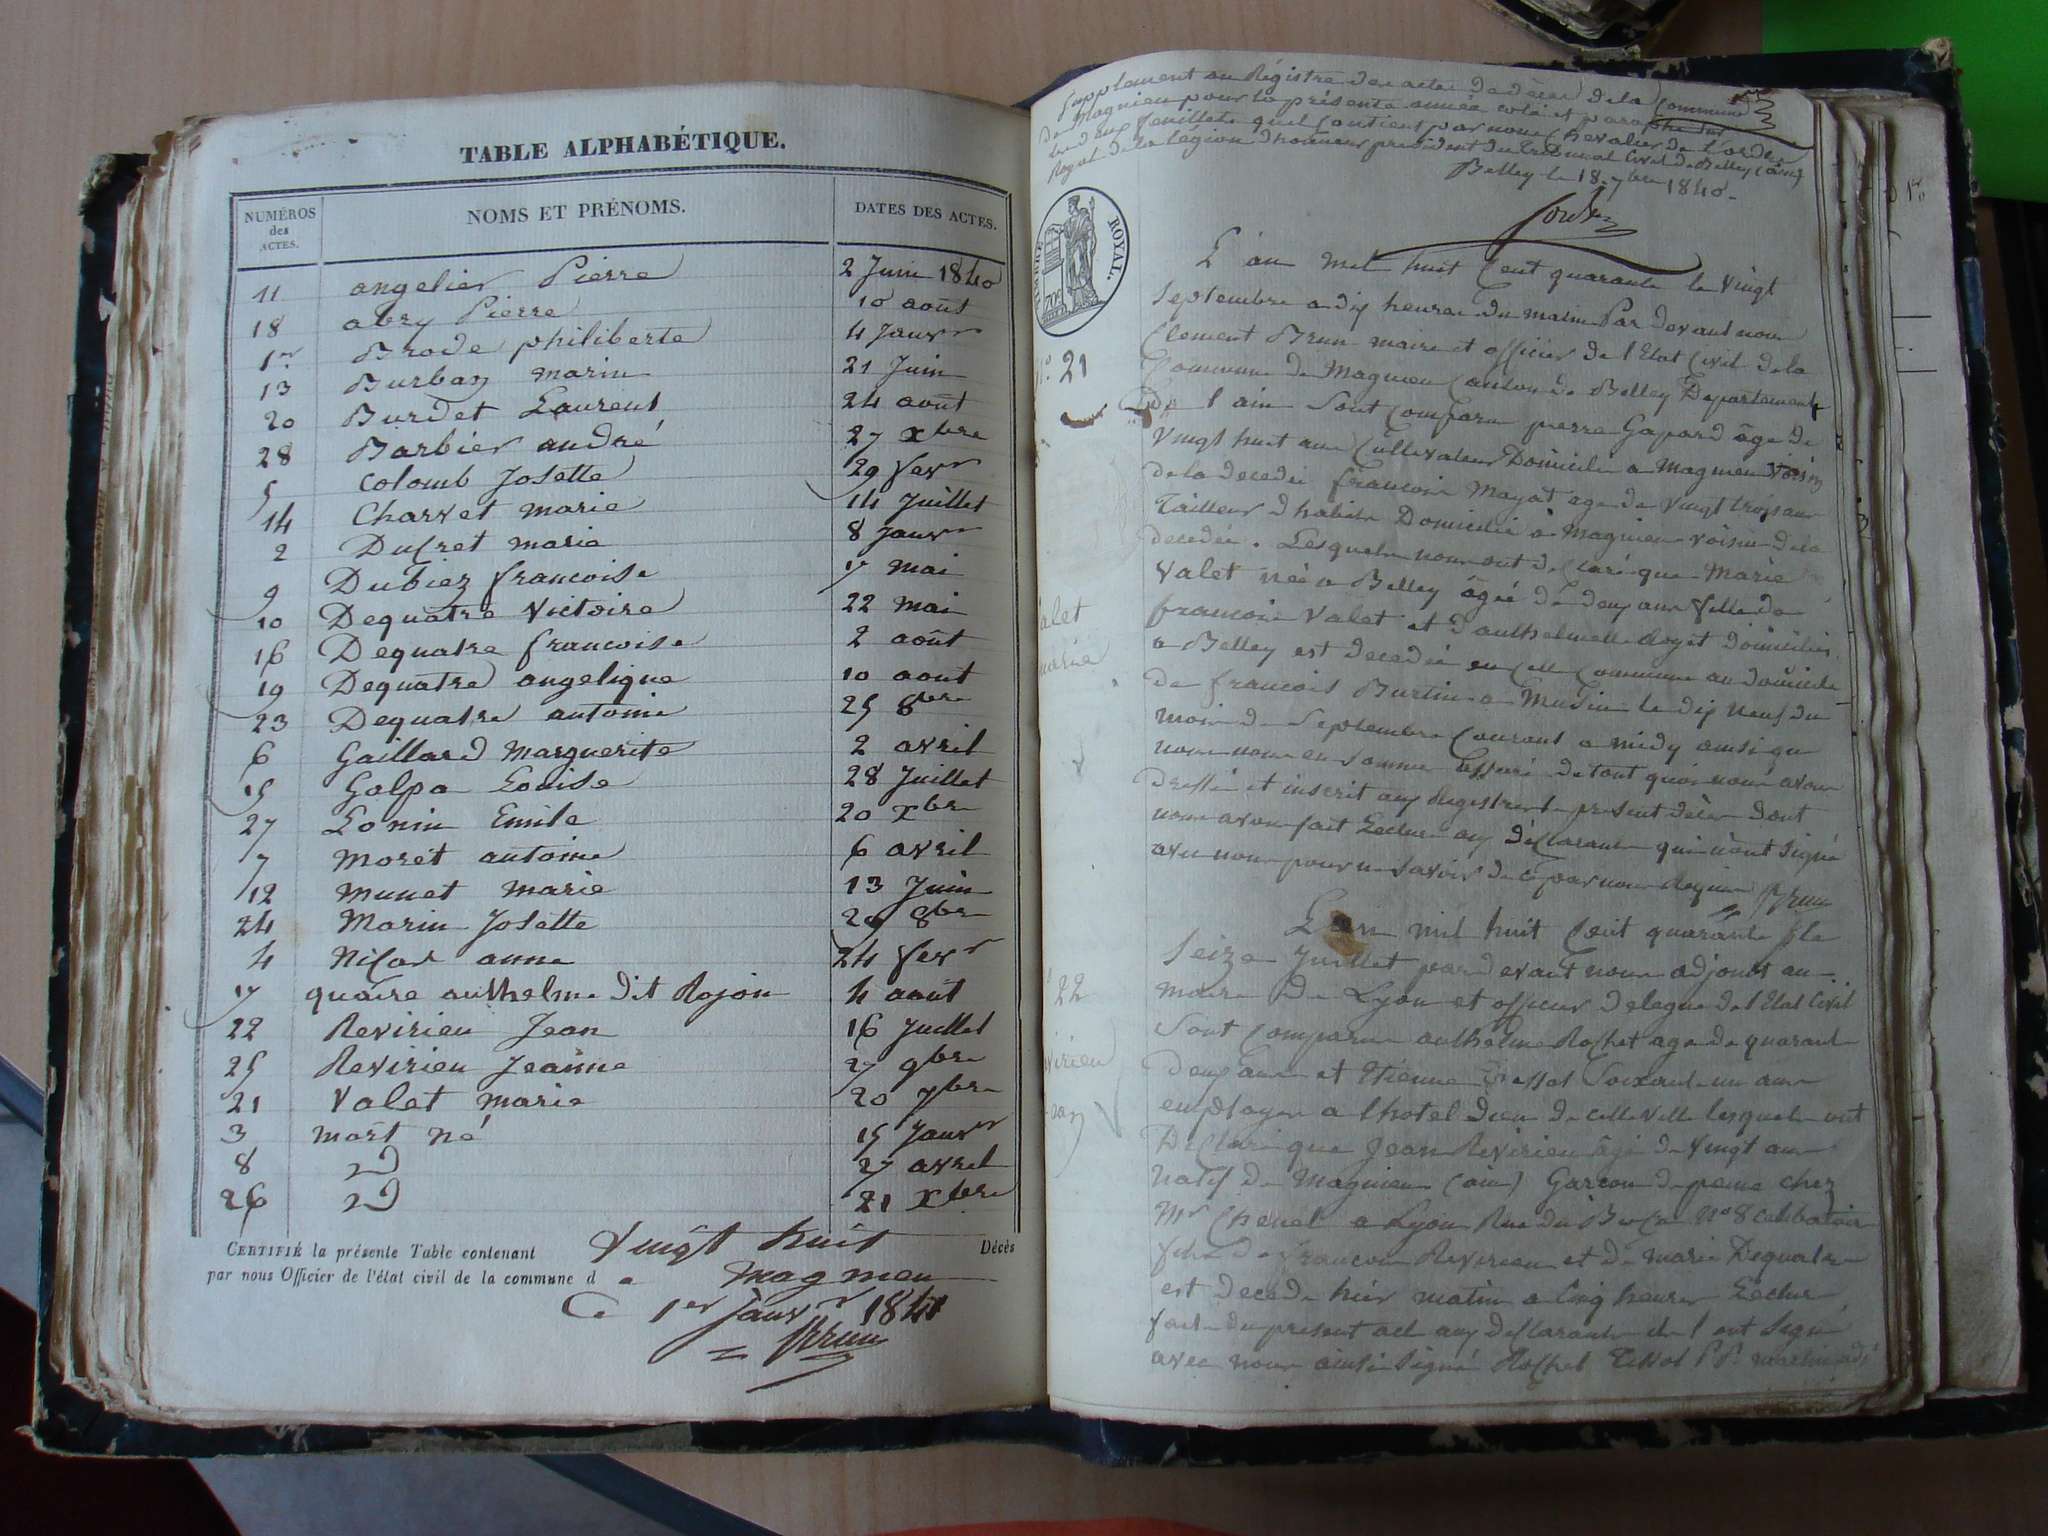 TABLE ALPHABÉTIQUE.
NUMÉROS des ACTES. NOMS ET PRÉNOMS. DATES DES ACTES.
11 angelier Pierre 2 Juin 1840
18 abry Pierre 10 août
1er Brode philiberte 4 Janvr
13 Burbaz marin 21 Juin
20 Burdet Laurent 24 août
28 Barbier andré 27 Xbre
5 Colomb Josette 29 fevr
14 Charvet marie 14 Juillet
2 Ducret marie 8 Janvr
9 Dubiez francoise 17 mai
10 Dequatre Victoire 22 mai
16 Dequatre francoise 2 août
19 Dequatre angelique 10 aout
23 Dequatre antoine 25 8bre
6 Gaillard Marguerite 2 avril
15 Golpa Louise 28 Juillet
27 Lonin Emile 20 Xbre
7 Moret antoine 6 avril
12 Munet marie 13 Juin
24 Marin Josette 29 8bre
4 Nicod anne 24 fevr
17 quaire anthelme dit Rojon 4 août
22 Revirieu Jean 16 Juillet
25 Revirieu Jeanne 27 9bre
21 Valet marie 20 7bre
3 mort né 15 Janvr
8 id 27 avril
26 id 21 Xbre
CERTIFIÉ la présente Table contenant Vingt huit Décès
par nous Officier de l'état civil de la commune d e magnieu
Ce 1er Janvr 1841
Brun
Supplement au Régistre des actes de décès de la Commune
de Magnieu pour la présente année coté et paraphé sur
les deux feuillets quil contient par nous Chevalier de l'ordre
Royal de la légion dhonneur président du tribunal Civil de Belley (ain)
Belley le 18 7bre 1840.
TIMBRE ROYAL.
70c
L'an mil huit Cent quarante le vingt
Septembre a dix heures du matin Par devant nous
Clement Brun maire et officier de l'Etat Civil de la
No 21
Commune de Magnieu Canton de Belley Departement
De l'ain Sont Comparu pierre Gapard âgé de
Vingt huit ans Cultivateur Domicilié a Magnieu Voisin
de la decedée francois Mayat age de Vingt trois ans
Tailleur d'habits Domicilié a Magnieu voisin de la
decedée. Lesquels nous ont declaré que Marie
Valet née a Belley âgée de deux ans fille de
Valet
marie
francois Valet et d'anthelmette Royet domiciliés
a Belley est decedée en Cette Commune au domicile
de francois Burtin a Musin le dix neuf du
mois de Septembre Courant a midy ainsi que
nous nous en sommes assuré de tout quoi nous avons
dressé et inscrit aux Registres le present décès dont
nous avons fait Lecture aux déclarants qui n'ont signé
avec nous pour ne savoir de ce par nous Requis Brun
L'an mil huit Cent quarante le
Seize Juillet par devant nous adjoint au
22
maire de Lyon et officier delegué de l'Etat Civil
Sont Comparu anthelme Rochet age de quarante
Revirieu
deux ans et Etienne Tissot Soixante un ans
employés a l'hotel dieu de cette ville lesquels ont
Jean
Declaré que Jean Revirieu âgé de Vingt ans
natif de Magnieu (ain) Garcon de peine chez
Mr Chenel a Lyon Rue du No 8 celibataire
fils de francois Revirieu et de marie Dequatre
est decedé hier matin a Cinq heures Lecture
faite du present acte aux déclarants ils l'ont signé
avec nous ainsi signé Rochet Tissot